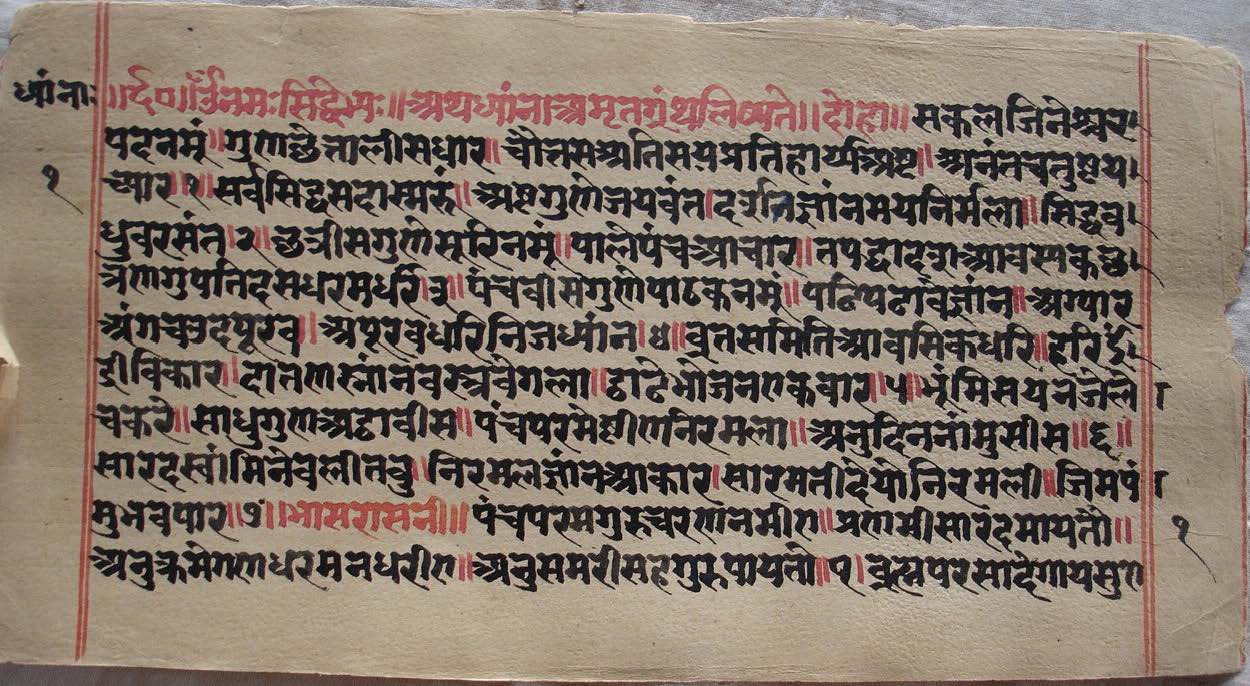 ध्यांना॰
॥र्द०॥ ॐ नमः सिद्धेभ्यः॥ अथ ध्यांनाअमृतग्रंथ लिख्यते॥ दोहा॥ सकल जिनेश्वर
पदनमूं॥ गुणछेत्तालीसधार॥ चौत्तसअतिसयप्रतिहार्य्यअष्ट॥ अनंतचतुष्टय
१
च्यार॥१॥ सर्वसिद्धसदास्मरुं॥ अष्टगुणेजयवंत। दर्शनज्ञांनमयनिर्मला॥ सिद्धव
धुवरसंत।२॥ छत्रीसगुणेसूरिनमूं॥ पालेपंचआचार॥ तपद्वादशआवस्यकछ
त्रणगुपतिदसधरमधरि।३॥ पंचवीसगुणेपाठकनमूं॥ पढिपढावेज्ञांन॥ अग्यार
अंगचउदपूरव॥ अपूरवधरिनिजध्यांन।४॥ व्रतसमितिआवसिकधरि॥
द्रीविकार। दातणस्नांनवस्त्रवेगला॥ ठाढेभोजनएकवार॥५॥ भूंमिसयनजेले
चकरे॥ साधुगुणअठावीस॥ पंचपरमेष्टीएनिरमला॥ अनुदिननांमुसीस॥६॥
सारदस्वांमिनेवलीतवु॥ निरमलज्ञांनआकार। सारमतीदेयोनिरमली॥ जिमपं
मुभवपार॥७॥ ॥भासरासनी॥ पंचपरमगुरुचरणनमीए॥ प्रणमीसारदमायतो॥
१
अनुक्रमेगणधरमनधरीए॥ अनुसमरीसहगुरुपायतो॥१। ब्रह्मपरसादेगायसुए